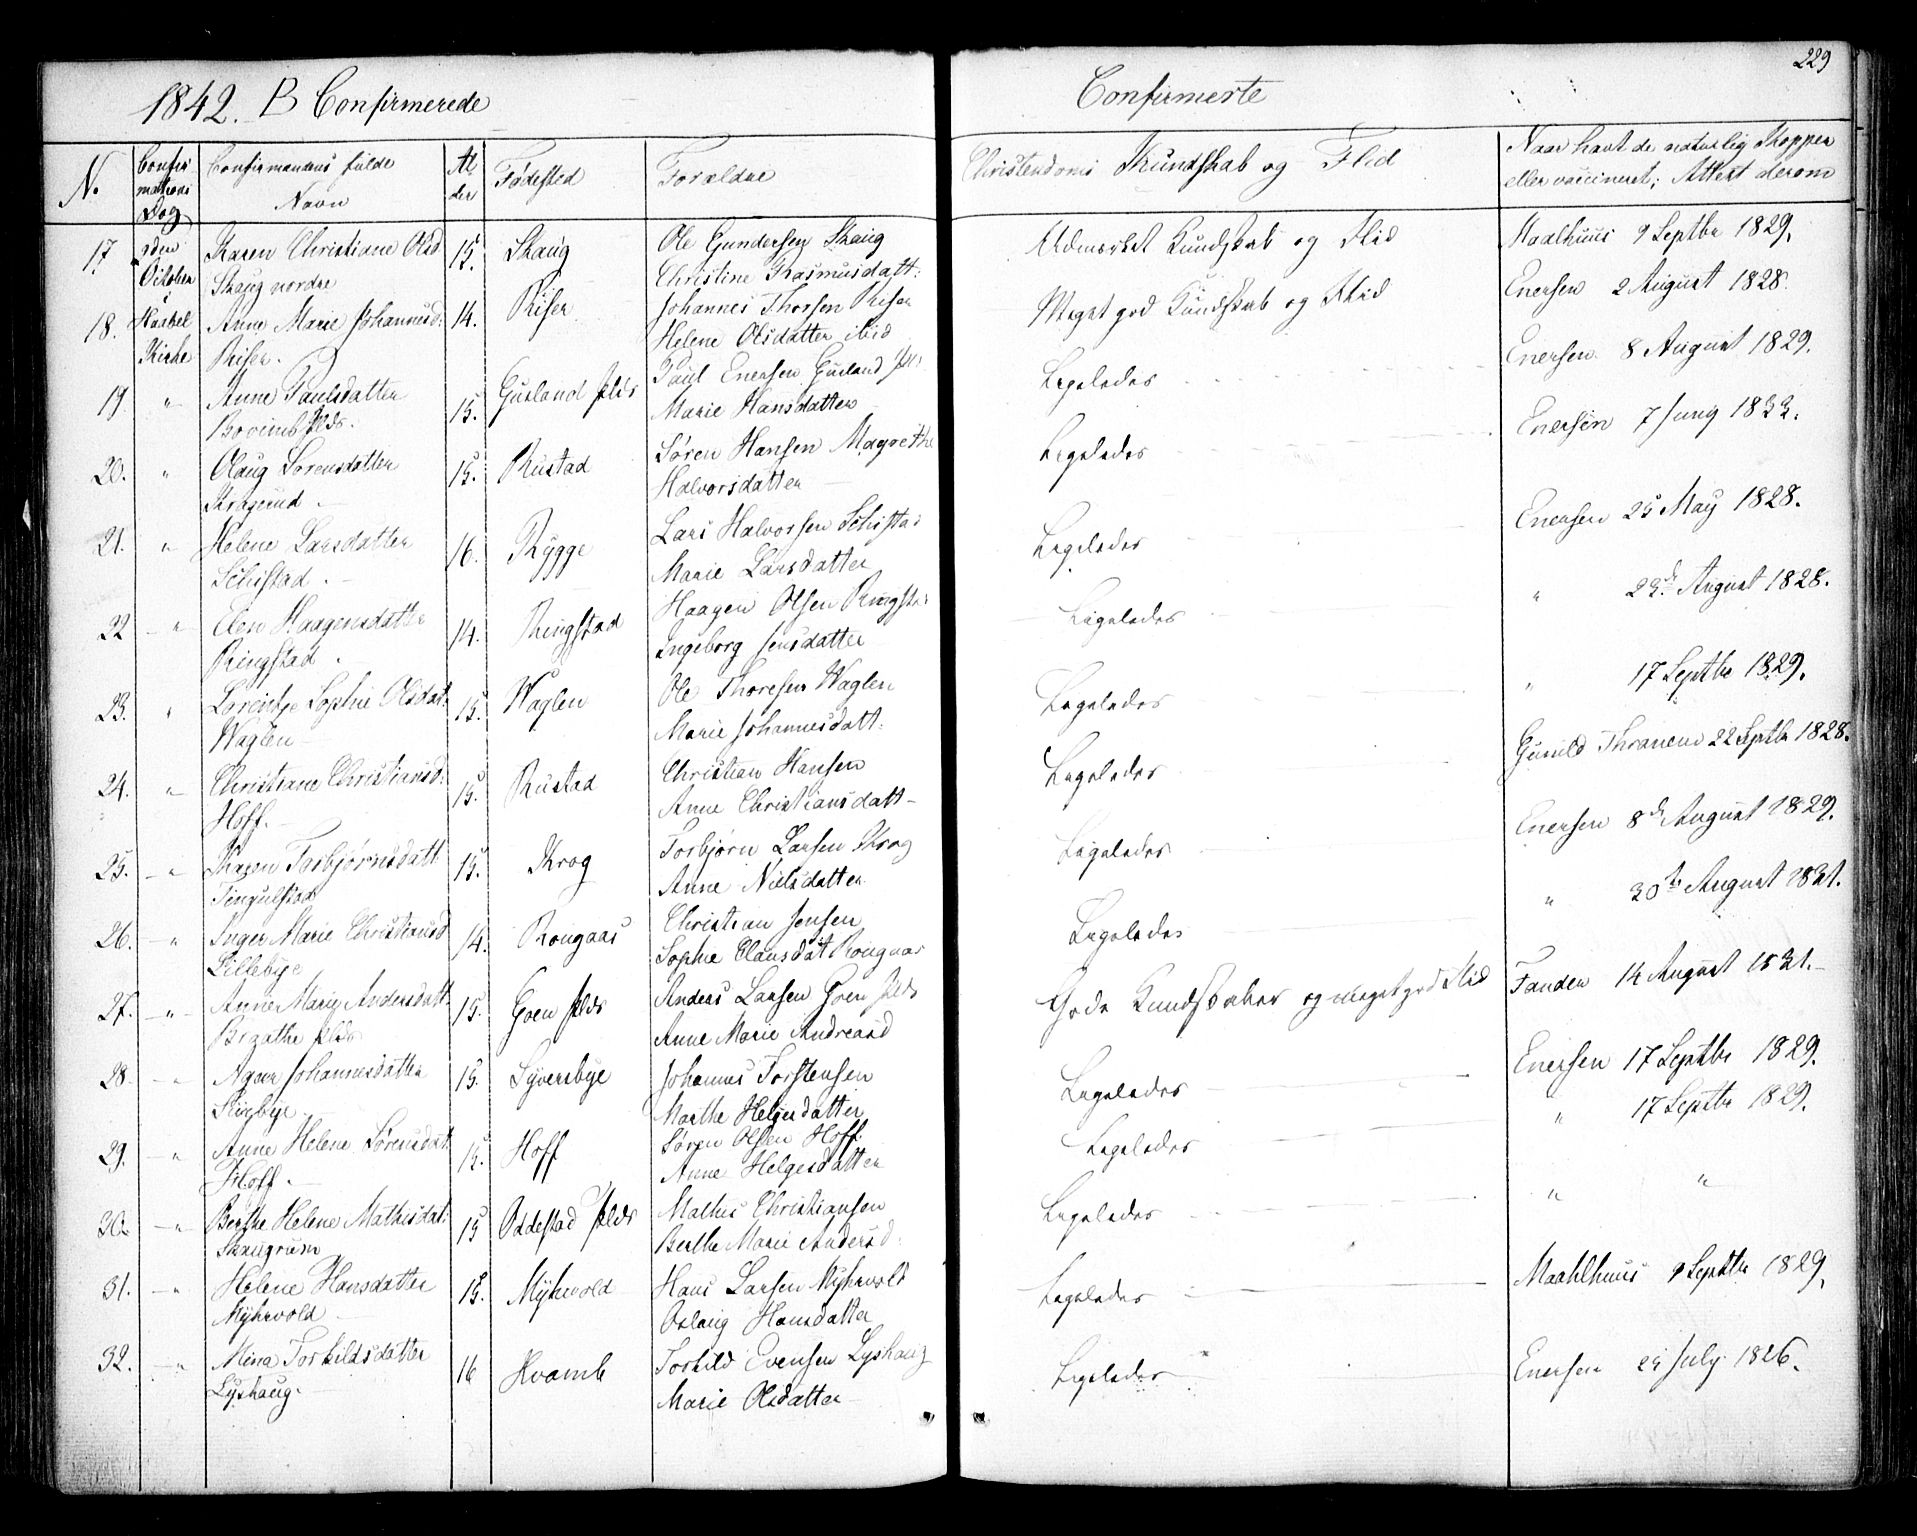 229
1842. B Confirmerede
Confirmerte
N.
Confir
mations
Dag
Confirmandens fulde
Navn
Al
der
Fødested
Forældre
Christendoms Kundskab og Flid
Naar havt de naturlig Kopper
eller vaccineret; Attest derom
17.
October
Karen Christiane Olsd
Skaug nordre
15.
Skaug
Ole Gundersen Skaug
Christine Rasmusdatt:
Udmerket Kundskab og Flid
Maalhuus 9 Septbr 1829.
18.
Kraabel
Kirke
Anne Marie Johannesd:
Riser.
14.
Riser
Johannes Thorsen Riser
Helene Olsdatter ibid
Meget god Kundskab og Flid
Enersen 2 August 1828.
19.
"
Anne Paulsdatter
15.
Gusland
Paul Enersen Gusland
Marie Hansdatter
Ligeledes
Enersen 8 August 1829.
20.
"
Olaug Sørensdatter
Kragerud.
15.
Rustad
Søren Hansen Magrethe
Halvorsdatter
Ligeledes
Enersen 7 Juny 1833.
21.
"
Helene Larsdatter
Schistad.
16.
Rygge
Lars Halvorsen Schistad
Marie Larsdatter
Ligeledes
Enersen 25 May 1828.
22
"
Elen Haagensdatter
Ringstad.
14.
Ringstad
Haagen Olsen Ringstad
Ingeborg Jensdatter
Ligeledes
" 23d August 1828.
23.
"
Lorentze Sophie Olsdat
Waglen
15.
Waglen
Ole Thoresen Waglen
Marie Johannesdatt:
Ligeledes
" 17 Septbr 1829.
24.
"
Christiane Christiansd.
Hoff.
15.
Rustad
Christian Hansen
Anne Christiansdatt
Ligeledes
Gunild Thranem 22 Septbr 1828.
25.
"
Karen Torbjørnsdatt
Tingulstad
15.
Krog
Torbjørn Larsen Krog
Anne Nielsdatter
Ligeledes
Enersen 8d August 1829.
26.
"
Inger Marie Christiansd
Lillebye
14.
Rongaas
Christian Jensen
Sophie Clausdat Rongaas
Ligeledes
" 30te August 1831.
27.
"
Anne Marie Andersdatt
15.
Goen
Andeas Larsen Goen
Anne Marie Andreasd
Gode Kundskaber og meget god Flid
Fanden 14 August 1831.
28.
"
Johannesdatter
15.
Syversbye
Johannes Torstensen
Marthe Helgesdatter
Ligeledes
Enersen 17 Septbr 1829.
29.
"
Anne Helene Sørensdat
Hoff.
15.
Hoff
Søren Olsen Hoff.
Anne Helgesdatter
Ligeledes
" 17 Septbr 1829.
30.
"
Berthe Helene Mathisdat:
Skaugrum
15
Mathis Christiansen
Berthe Marie Andersd.
Ligeledes
" "
31.
"
Helene Hansdatter
Myhrvold
15.
Myhrvold
Hans Larsen Myhrvold
Oslaug Hansdatter
Ligeledes
Maahlhuus 9 Septbr 1829.
32.
"
Mina Torkildsdatter
Lyshaug.
16
Hvamb
Torkild Evensen Lyshaug
Marie Olsdatter
Ligeledes
Enersen 25 July 1826.